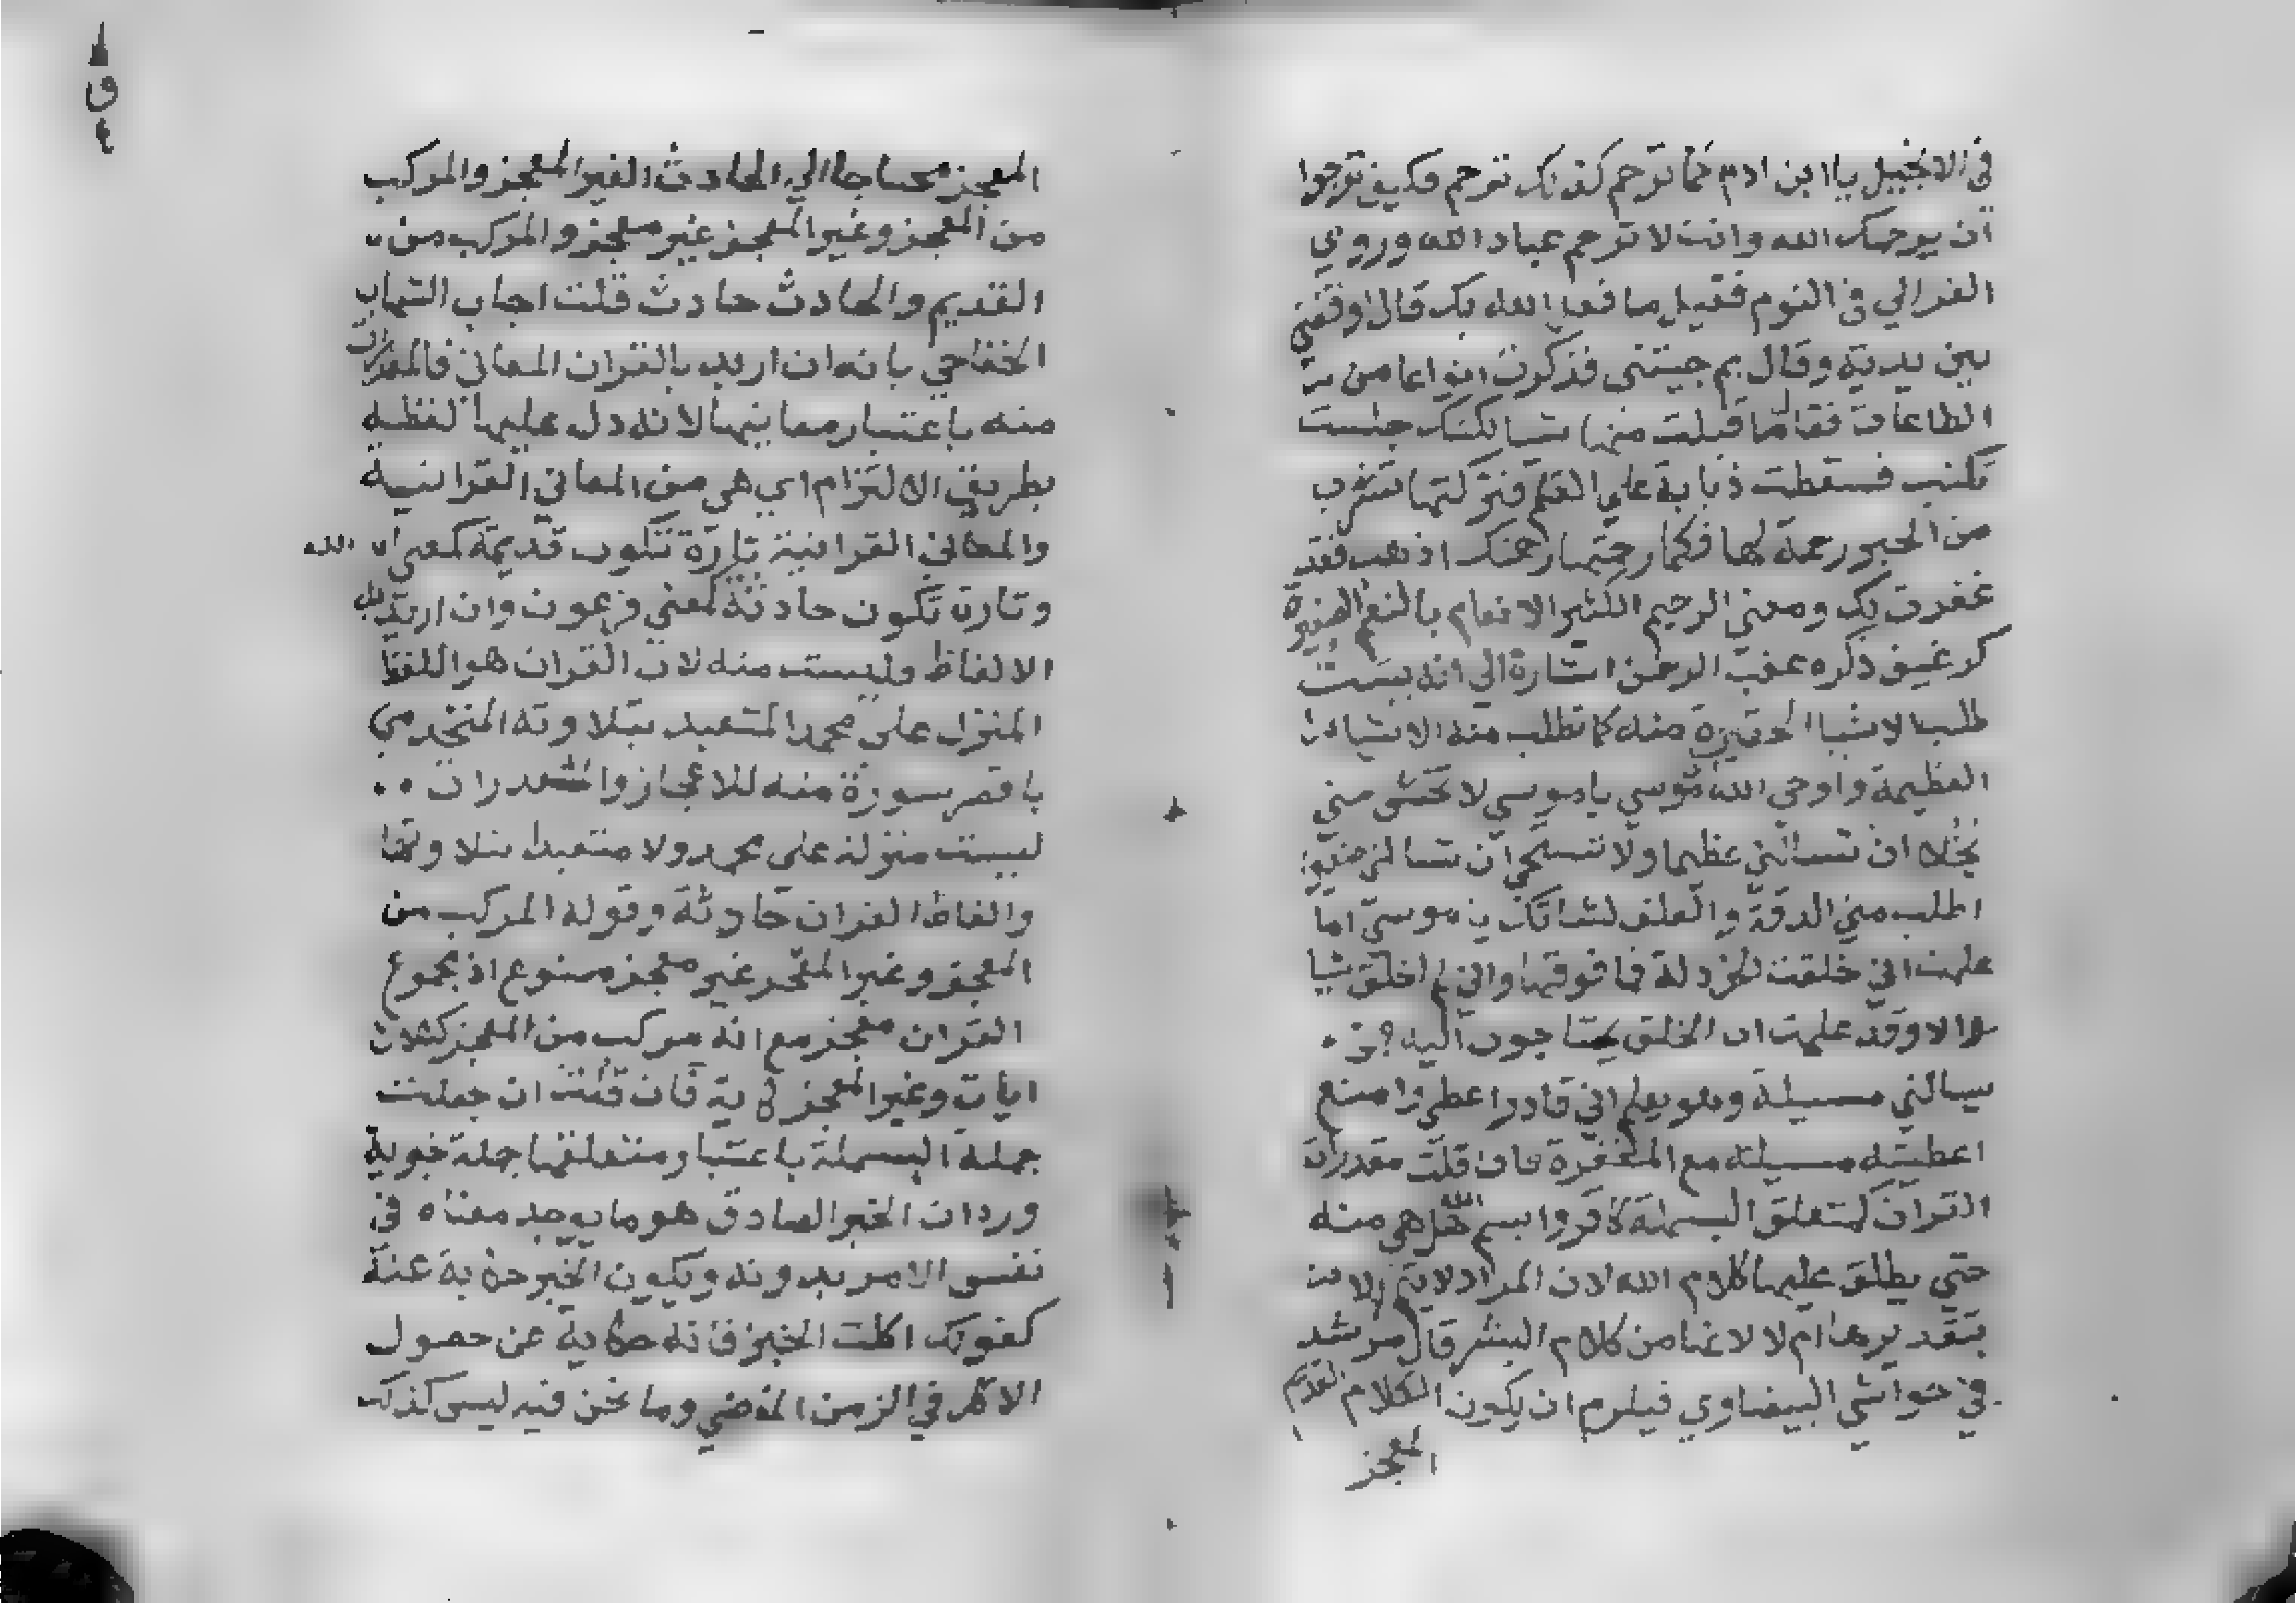 في الانجيل يا ابن ادم كما ترحم كذلك ترحم فكيف ترجوا
ان يرحمك الله وانت لا ترحم عباد الله وروي
الغزالي في النوم فقيل ما فعل الله بك قال اوقفني
بين يديه وقال بم جيتني فذكرت انواعا من
الطاعات فقال ما قبلت منها شيا لكنك جلست
تكتب فسقطت ذبابة على القلم فتركتها تشرب
من الحبر رحمة لها فكما رحمتها رحمتك اذهب فقد
غفرت لك ومعني الرحيم الكثير الانعام بالنعم الصغيرة
كرغيف ذكره عقب الرحمن اشارة الي انه
طلب الاشيا الحقيرة منه كما تطلب منه الاشياء
العظيمة واوحي الله لموسي يا موسي لا تخش مني
بخلا ان تسالني عظيما ولا تستحي ان تسالني صغيرا
اطلب مني الدقة والعلف لشاتك يا موسي اما
علمت اني خلقت الخردلة فما فوقها واني لم اخلق شيا
الا وقد علمت ان الخلق يحتاجون اليه فمن
يسالني مسيلة وهو يعلم اني قادر اعطي وامنع
اعطيته مسيلته مع المغفرة فان قلت مقدرات
القران كمتعلق البسملة كاقروا بسم الله هل هي منه
حتي يطلق عليها كلام الله لان المراد لا يتم الا
بتقديرها ام لا لانها من كلام البشر قال مرشد
في حواشي البيضاوي فيلزم ان يكون الكلام القديم
المعجز
المعجز محتاجا الي الحادث الغير المعجز والمركب
من المعجز وغير المعجز غير معجز والمركب من
القديم والحادث حادث قلت اجاب الشهاب
الخفاجي بانه ان اريد بالقران المعاني فالمقدرات
منه باعتبار معانيها لانه دل عليها لفظه
بطريق الالتزام اي هي من المعاني القرانية
والمعاني القرانية تارة تكون قديمة كمعني الله
وتارة تكون حادثة كمعني فرعون وان اريد به
الالفاظ فليست منه لان القران هو اللفظ
المنزل علي محمد المتعبد بتلاوته المتحدي
باقصر سورة منه للاعجاز والمقدرات
ليست منزلة على محمد ولا متعبدا بتلاوتها
والفاظ القران حادثة وقوله المركب من
المعجز وغير المعجز غير معجز ممنوع اذ مجموع
القران معجز مع انه مركب من المعجز كثلاث
ايات وغير المعجز كاية فان قلت ان جعلت
جملة البسملة باعتبار متعلقها جملة خبرية
ورد ان الخبر الصادق هو ما يوجد معناه في
نفس الامر بدونه ويكون الخبر حكاية عنه
كقولك اكلت الخبز فانه حكاية عن حصول
الاكل في الزمن الماضي وما نحن فيه ليس كذلك